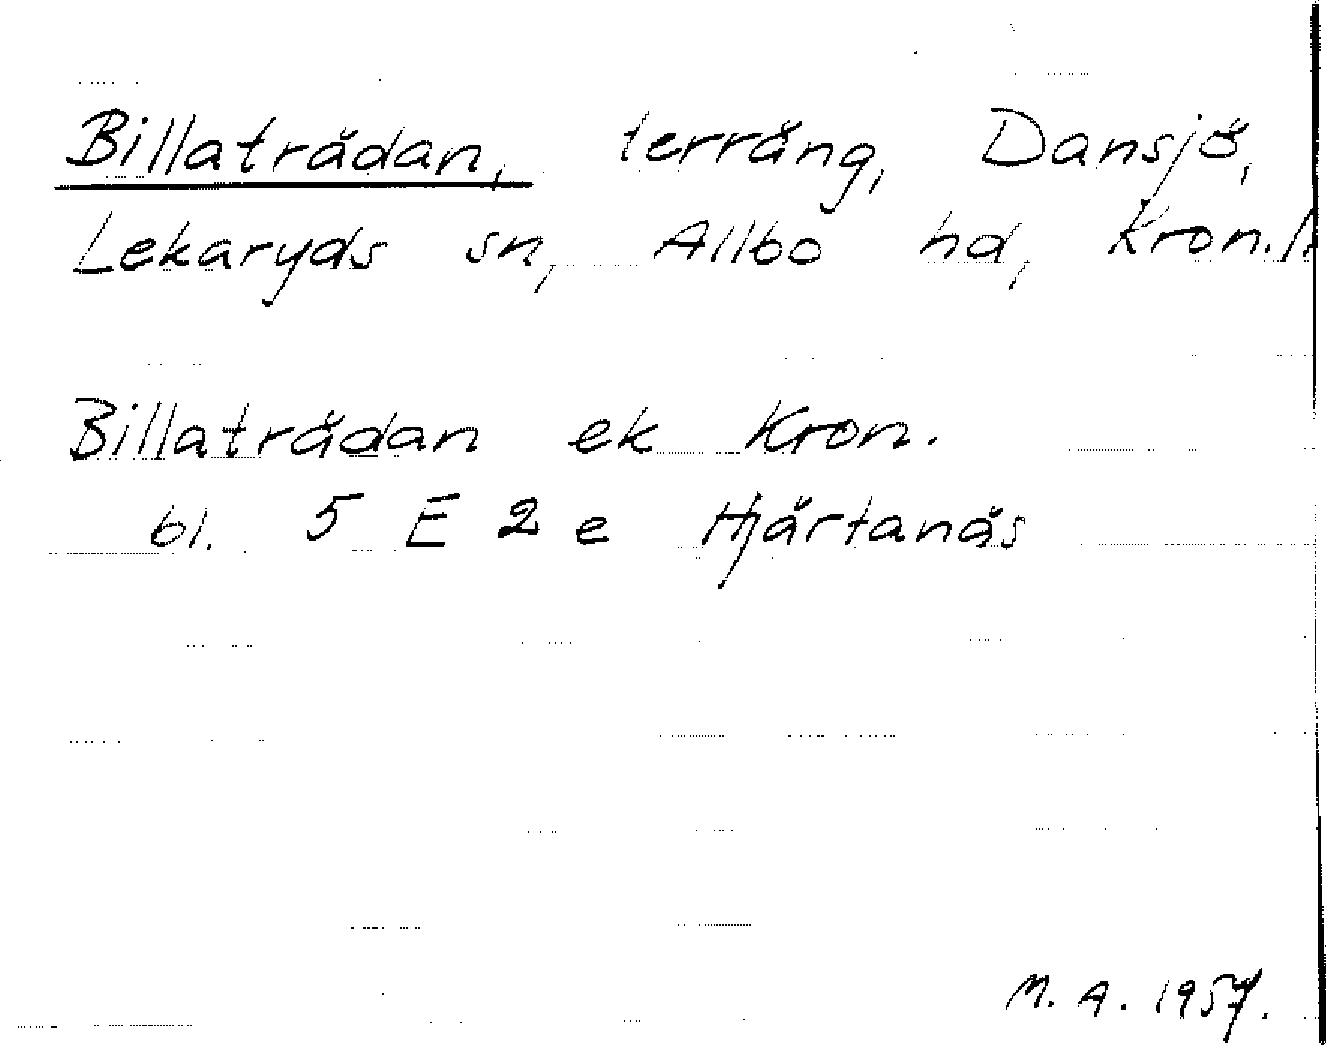 Billaträdan, terräng, Dansjö,
Lekaryds sn, Allbo hd, Kron.l.
Billaträdan ek Kron.
bl. 5 E 2 e Hjärtanäs
M. A. 1957.